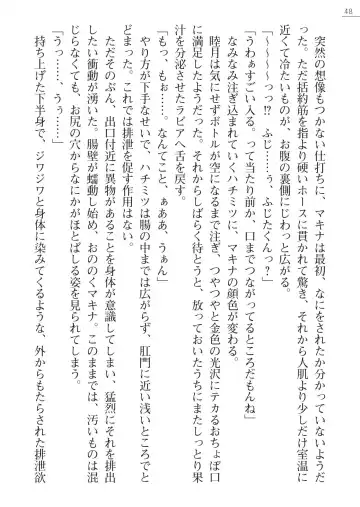 48
突然の想像もつかない仕打ちに、マキナは最初、なにをされたか分かっていないようだ
った。ただ括約筋を指より硬いホースに貫かれて驚き、それから人肌より少しだけ室温に
近くて冷たいものが、お腹の裏側にじわっと広がる。
「~~~~っっ?　ふじ……ぅ、ふじたくんっ?」
「うわぁすごい入る。って当たり前か、口までつながってるところだもんね」
なみなみ注ぎ込まれていくハチミツに、マキナの顔色が変わる。
睦月は気にせずボトルが空になるまで注ぎ、つやつやと金色の光沢にテカるおちょぼ口
に満足したようだった。それからしばらく待とうと、放っておいたうちにまたしっとり果
汁を分泌させたラビアへ舌を戻す。
「もっ、もぉ……。なんてこと、ぁああ、うぁん」
やり方が下手なせいで、ハチミツは腸の中までは広がらず、肛門に近い浅いところでと
どまった。これでは排泄を促す作用はない。
ただそのぶん、出口付近に異物があることを身体が意識してしまい、猛烈にそれを排出
したい衝動が湧いた。腸壁が蠕動し始め、おののくマキナ。このままでは、汚いものは混
ざらなくとも、お尻の穴からなにかがほとばしる姿を見られてしまう。
「うっ……、うぅ……」
持ち上げた下半身で、ジワジワと身体に染みてくるような、外からもたらされた排泄欲